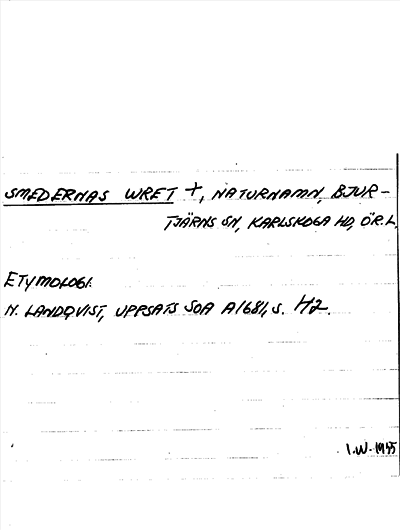 SMEDERNAS WRET +, NATURNAMN, BJUR-
TJÄRNS SN, KARLSKOGA HD, ÖR.L.
ETYMOLOGI.
N. LANDQVIST, UPPSATS SOA A1681, S. 42.
I.W.